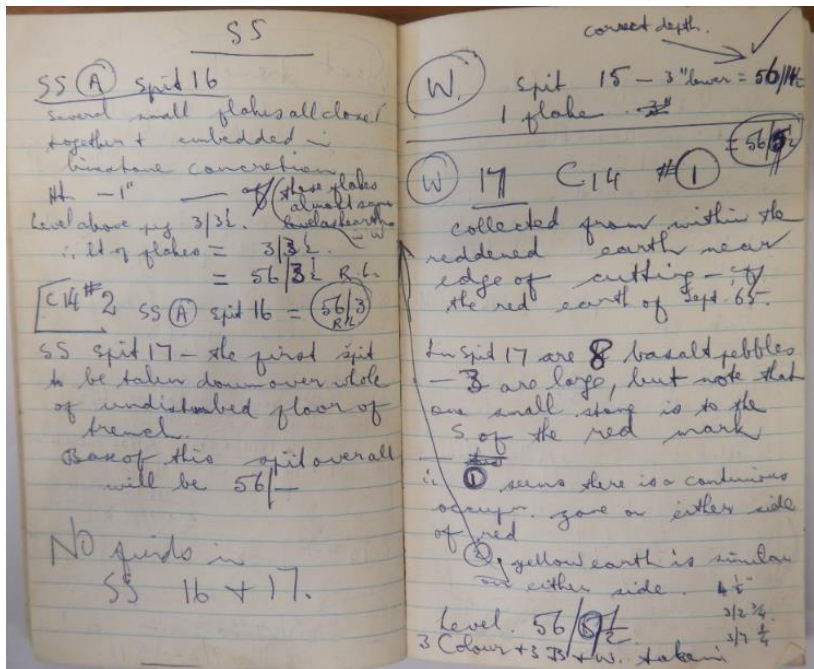 SS
SS (A) Spit 16
Several small flakes all close
together + embedded in
limestone concretion
Ht - 1" — cf these flakes
almost same
level as hearth
in W
Level above peg 3/3½.
∴ Ht of flakes = 3/3½
= 56/3½ R.L.
C14 #2 SS (A) Spit 16 = 56/3
R.L.
SS Spit 17 - the first spit
to be taken down over whole
of undisturbed floor of
trench.
Base of this spit overall
will be 56/—
NO finds in
SS 16 + 17.
correct depth. ✓
W. Spit 15 - 3" lower =
1 flake
W 17 C14 #1
collected from within the
reddened earth near
edge of cutting - cf
the red earth of Sept. 65.
In Spit 17 are 8 basalt pebbles
- 3 are large, but note that
one small stone is to the
S. of the red mark
∴ ① seems there is a continuous
occupn. zone on either side
of red
② yellow earth is similar
on either side. 4½"
3/2 ¾
3/7 ¼
Level. 56/5½
3 Colour + 3 B + W. taken